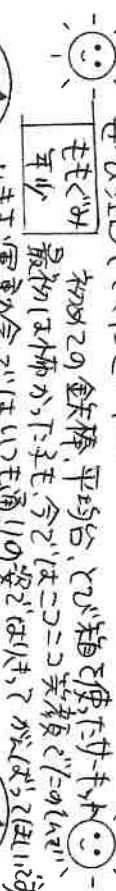 ももぐみ
年少
初めての鉄棒、平均台、とび箱を使ったサーキット
最初は怖かった子も、今ではニコニコ笑顔でたのしんで
います いつも通りの姿ではりきってがんばってほしいです